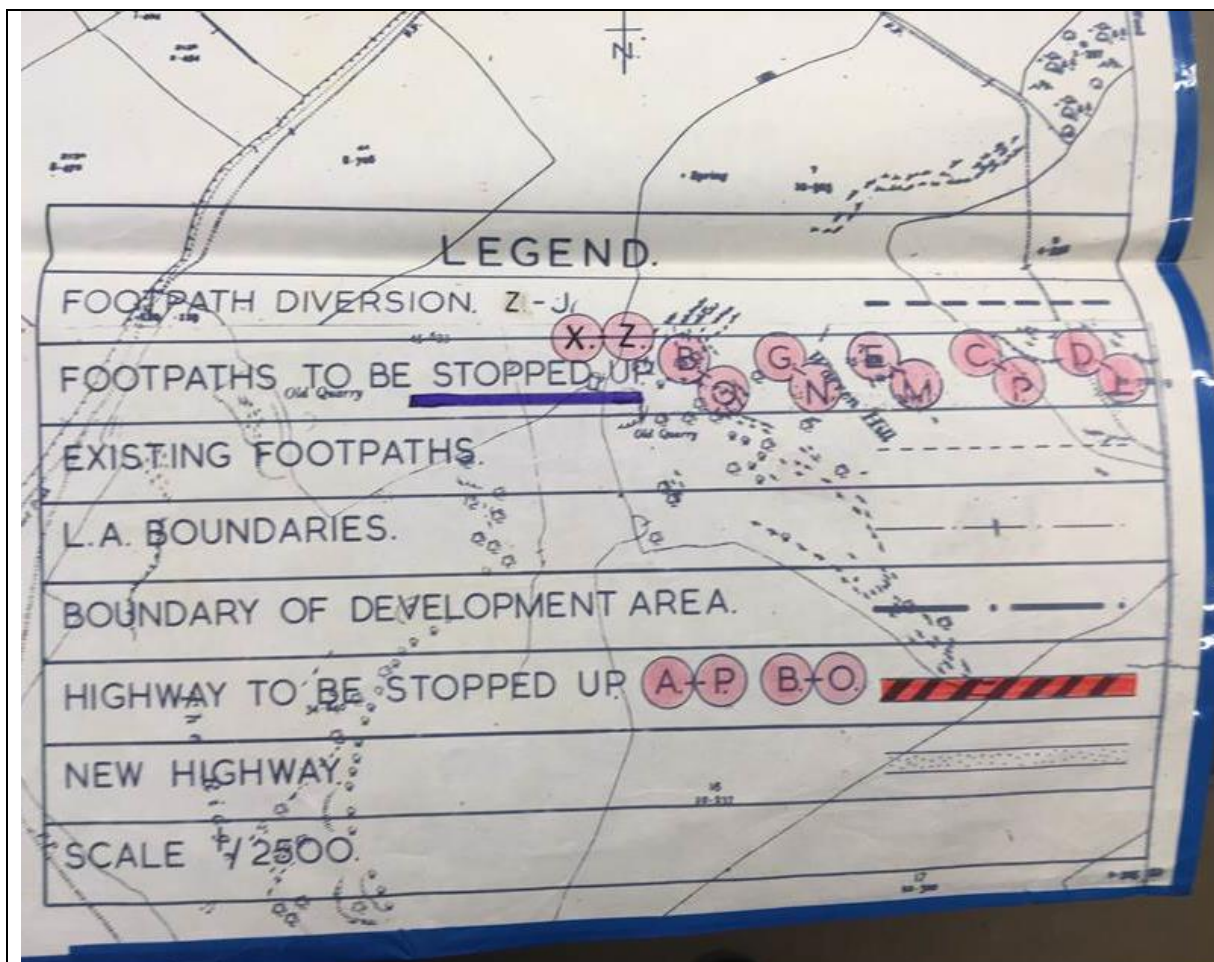 N.
Spring
LEGEND.
FOOTPATH DIVERSION. Z - J.
X. - Z.
FOOTPATHS TO BE STOPPED UP. B - O. G - N. E - M C - P. D - E
Old Quarry
Warren Hill
Old Quarry
EXISTING FOOTPATHS.
L.A. BOUNDARIES.
BOUNDARY OF DEVELOPMENT AREA.
HIGHWAY TO BE STOPPED UP. A.-P. B.-O.
NEW HIGHWAY.
SCALE 1/2500.